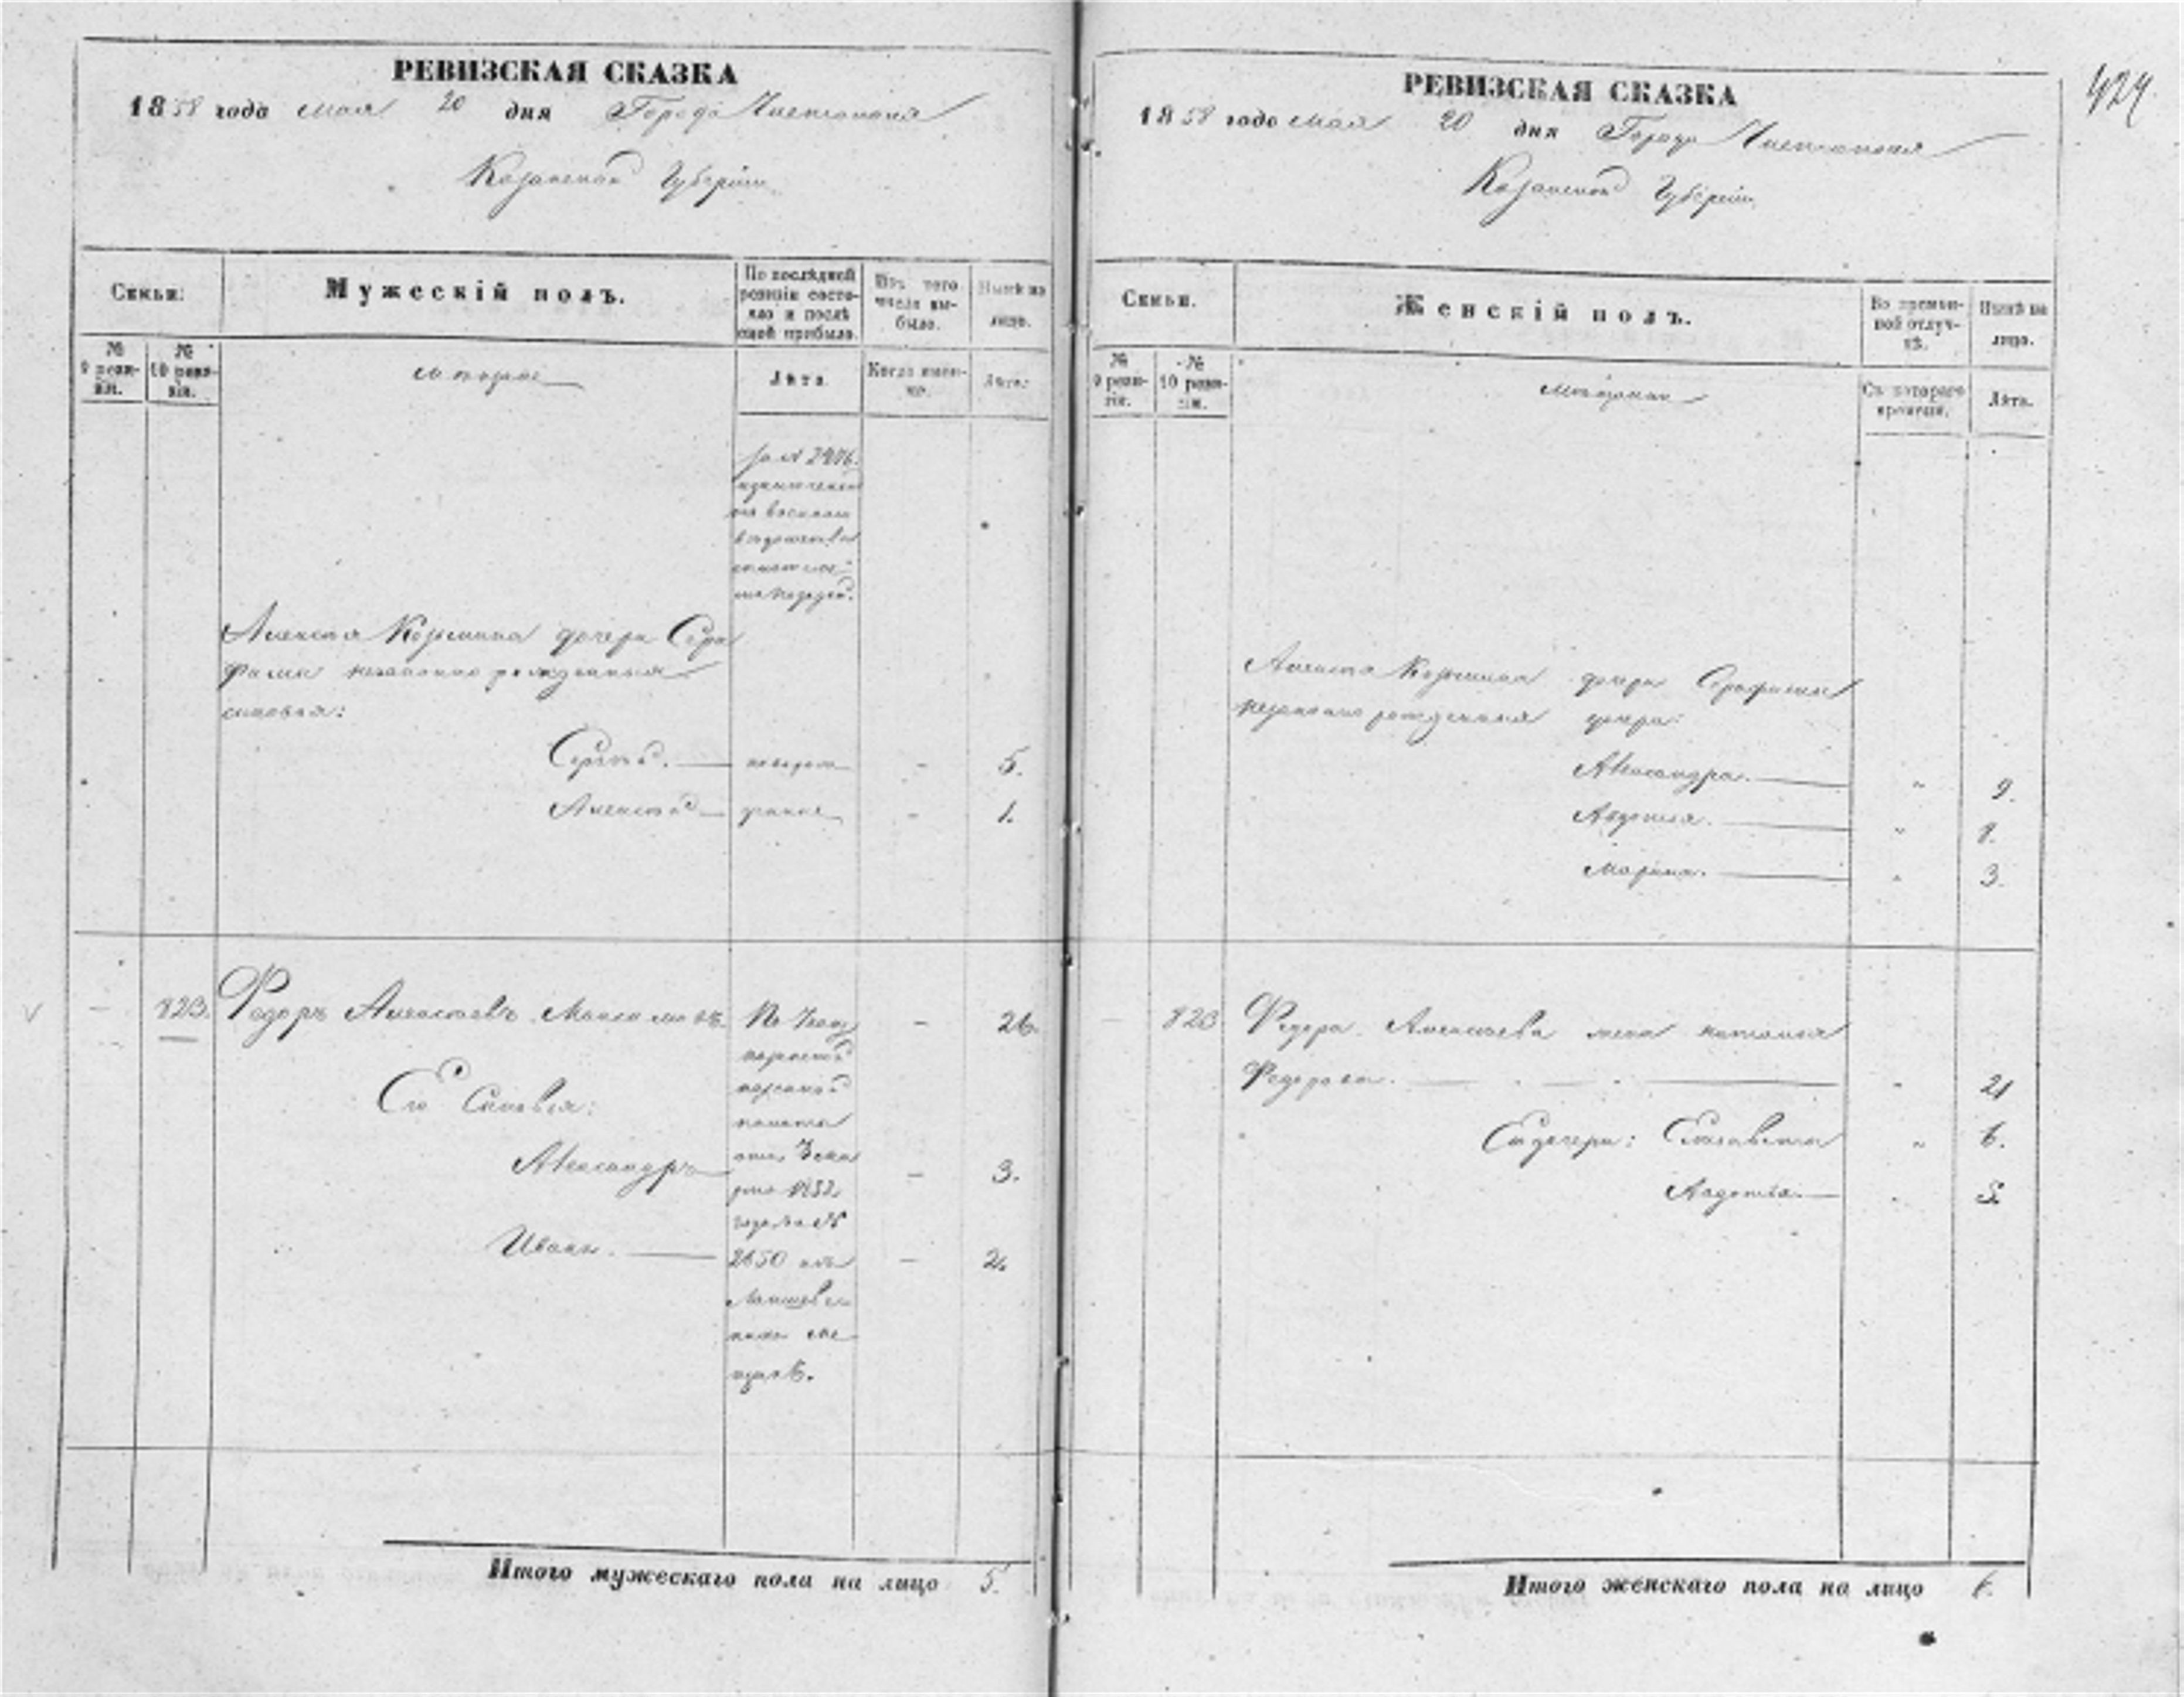 РЕВИЗСКАЯ СКАЗКА
1858 года мая 20 дня Города Чистополя
Казанской Губернiи
Семьи:
Мужескiй полъ.
По послѣдней ревизiи состояло и послѣ оной прибыло.
Изъ того числа выбыло.
Нынѣ на лицо.
№ 9 ревизiи.
№ 10 ревизiи.
Лѣта
Когда именно.
Лѣта.
за № 2976.
Алексѣя Козьмина дочери Сера
фимы незаконно рожденныя
сыновья:
Сергѣй. 5.
Алексѣй 1.
823. Федоръ Алексѣевъ 26.
Его Сыновья:
Александръ 3.
Иванъ. 2.
По Указу
казенной
палаты
отъ
1852
года за №
2650 изъ
Лаишев
скихъ мѣ
щанъ.
Итого мужескаго пола на лицо 5.
424.
РЕВИЗСКАЯ СКАЗКА
1858 года мая 20 дня Города Чистополя
Казанской Губернiи
Семьи.
Женскiй полъ.
Во временной отлучкѣ.
Нынѣ на лицо.
№ 9 ревизiи.
№ 10 ревизiи.
Съ котораго времени.
Лѣта.
Алексѣя Козьмина дочери Серафимы
незаконно рожденныя дочери:
Александра. " 9.
Авдотья. "
Марина. " 3.
823 Федора Алексѣева жена Наталья
Федорова. " 24
Ея дочери: Елизавета " 6.
Авдотья. " 5.
Итого женскаго пола на лицо 6.